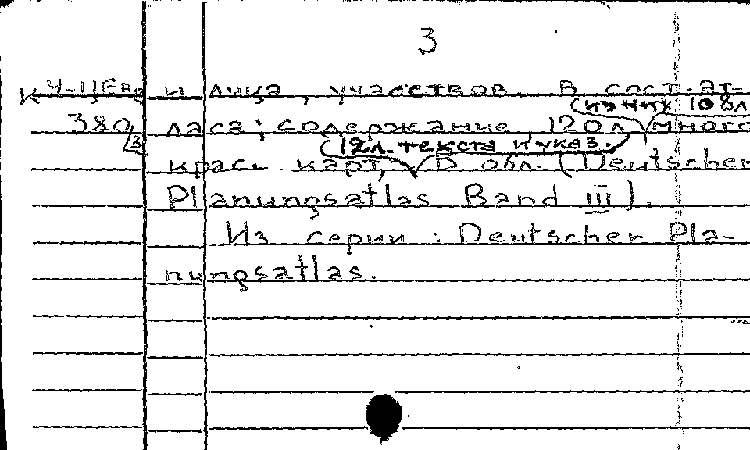 3
К Ч-ЦЕв и лица, участвов. в сост. ат-
(из них 108л
380/3 ласа; содержание 120л. много
(12л. текста и указ.)
крас. карт, В обл. (Deutscher
Planungsatlas Band III).
Из серии: Deutscher Pla-
nungsatlas.